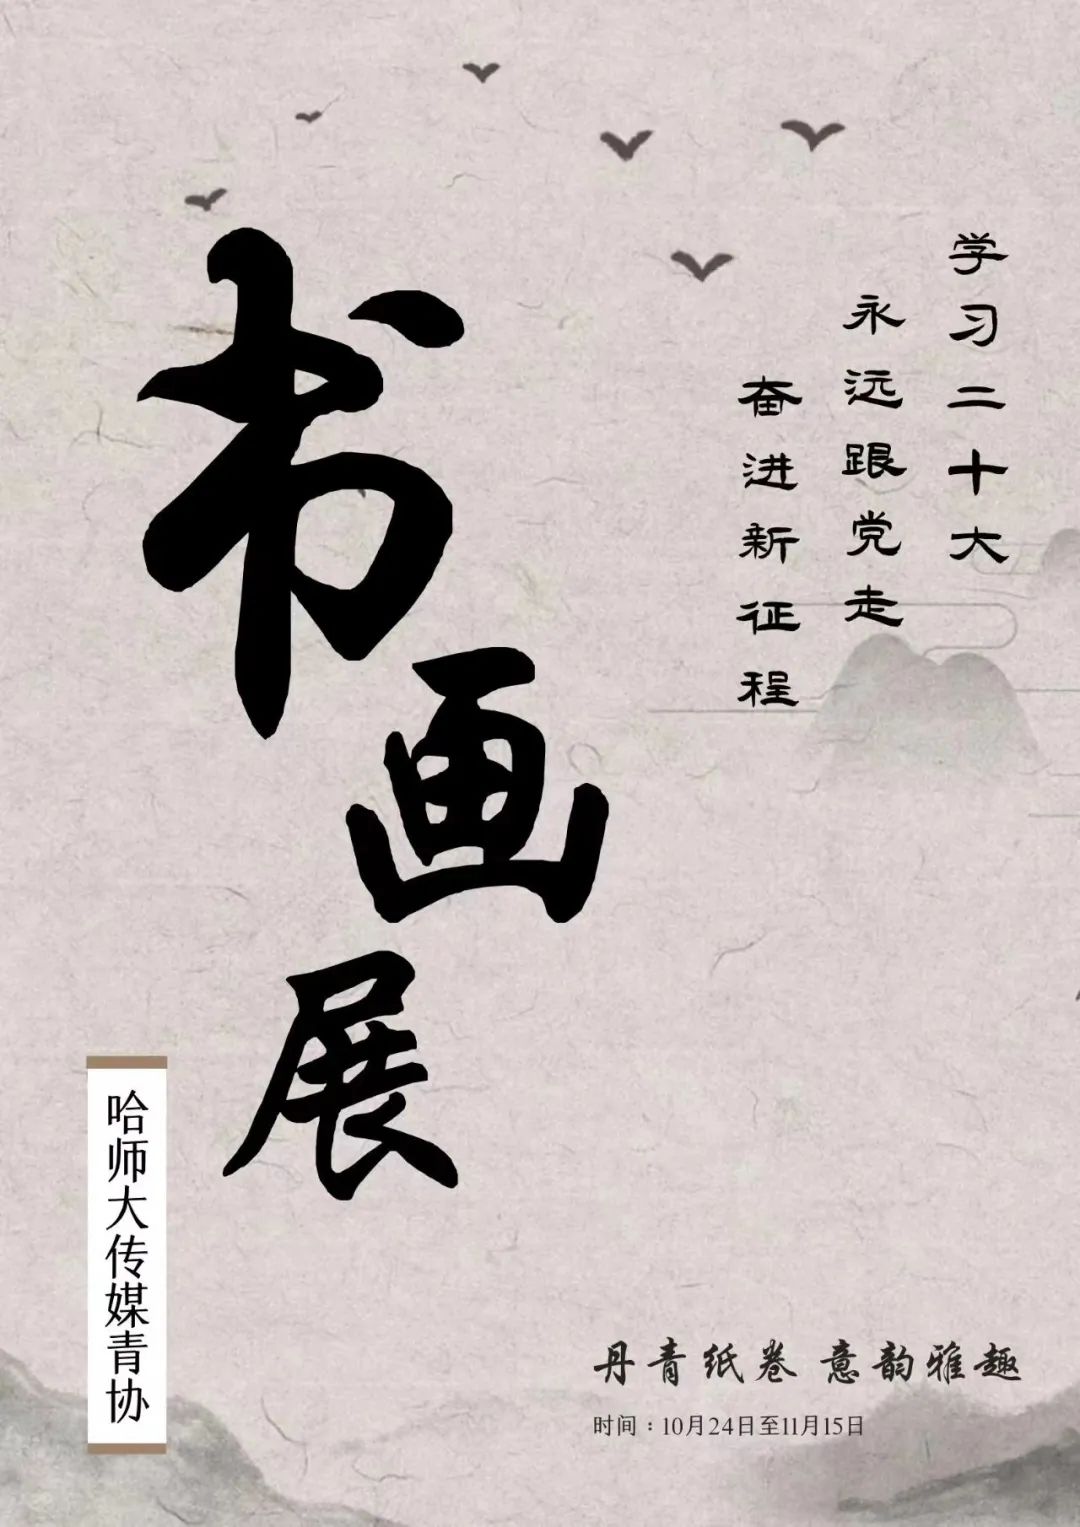 学习二十大
永远跟党走
奋进新征程
书画展
哈师大传媒青协
丹青纸卷 意韵雅趣
时间：10月24日至11月15日